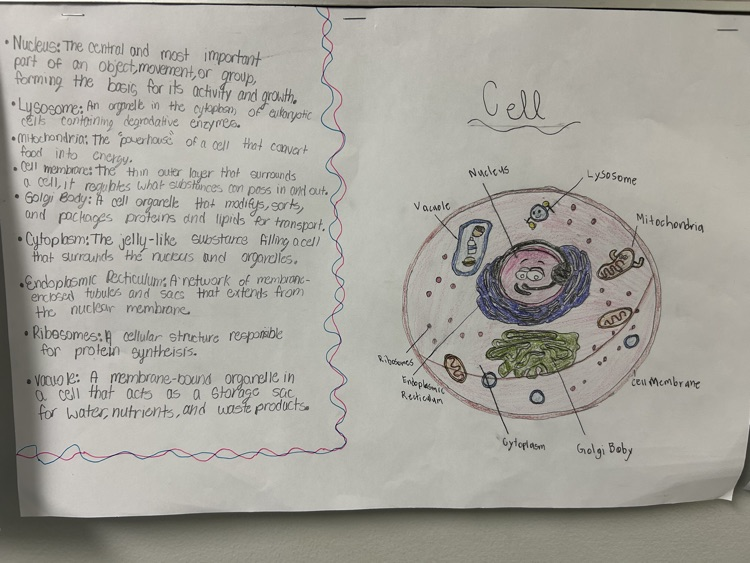 • Nucleus: The central and most important
part of an object, movement, or group,
forming the basis for its activity and growth.
• Lysosome: An organelle in the cytoplasm of eukaryotic
cells containing degradative enzymes.
• Mitochondria: The "powerhouse" of a cell that convert
food into energy.
• Cell membrane: The thin outer layer that surrounds
a cell, it regulates what substances can pass in and out.
• Golgi Body: A cell organelle that modifys, sorts,
and packages proteins and lipids for transport.
• Cytoplasm: The jelly-like substance filling a cell
that surrounds the nucleus and organelles.
• Endoplasmic Recticulum: A network of membrane-
enclosed tubules and sacs that extends from
the nuclear membrane.
• Ribosomes: A cellular structure responsible
for protein syntheisis.
• Vacuole: A membrane-bound organelle in
a cell that acts as a storage sac
for water, nutrients, and waste products.
Cell
Nucleus
Lysosome
Vacuole
Mitochondria
Ribosomes
Endoplasmic
Recticulum
Cell Membrane
Cytoplasm
Golgi Boby